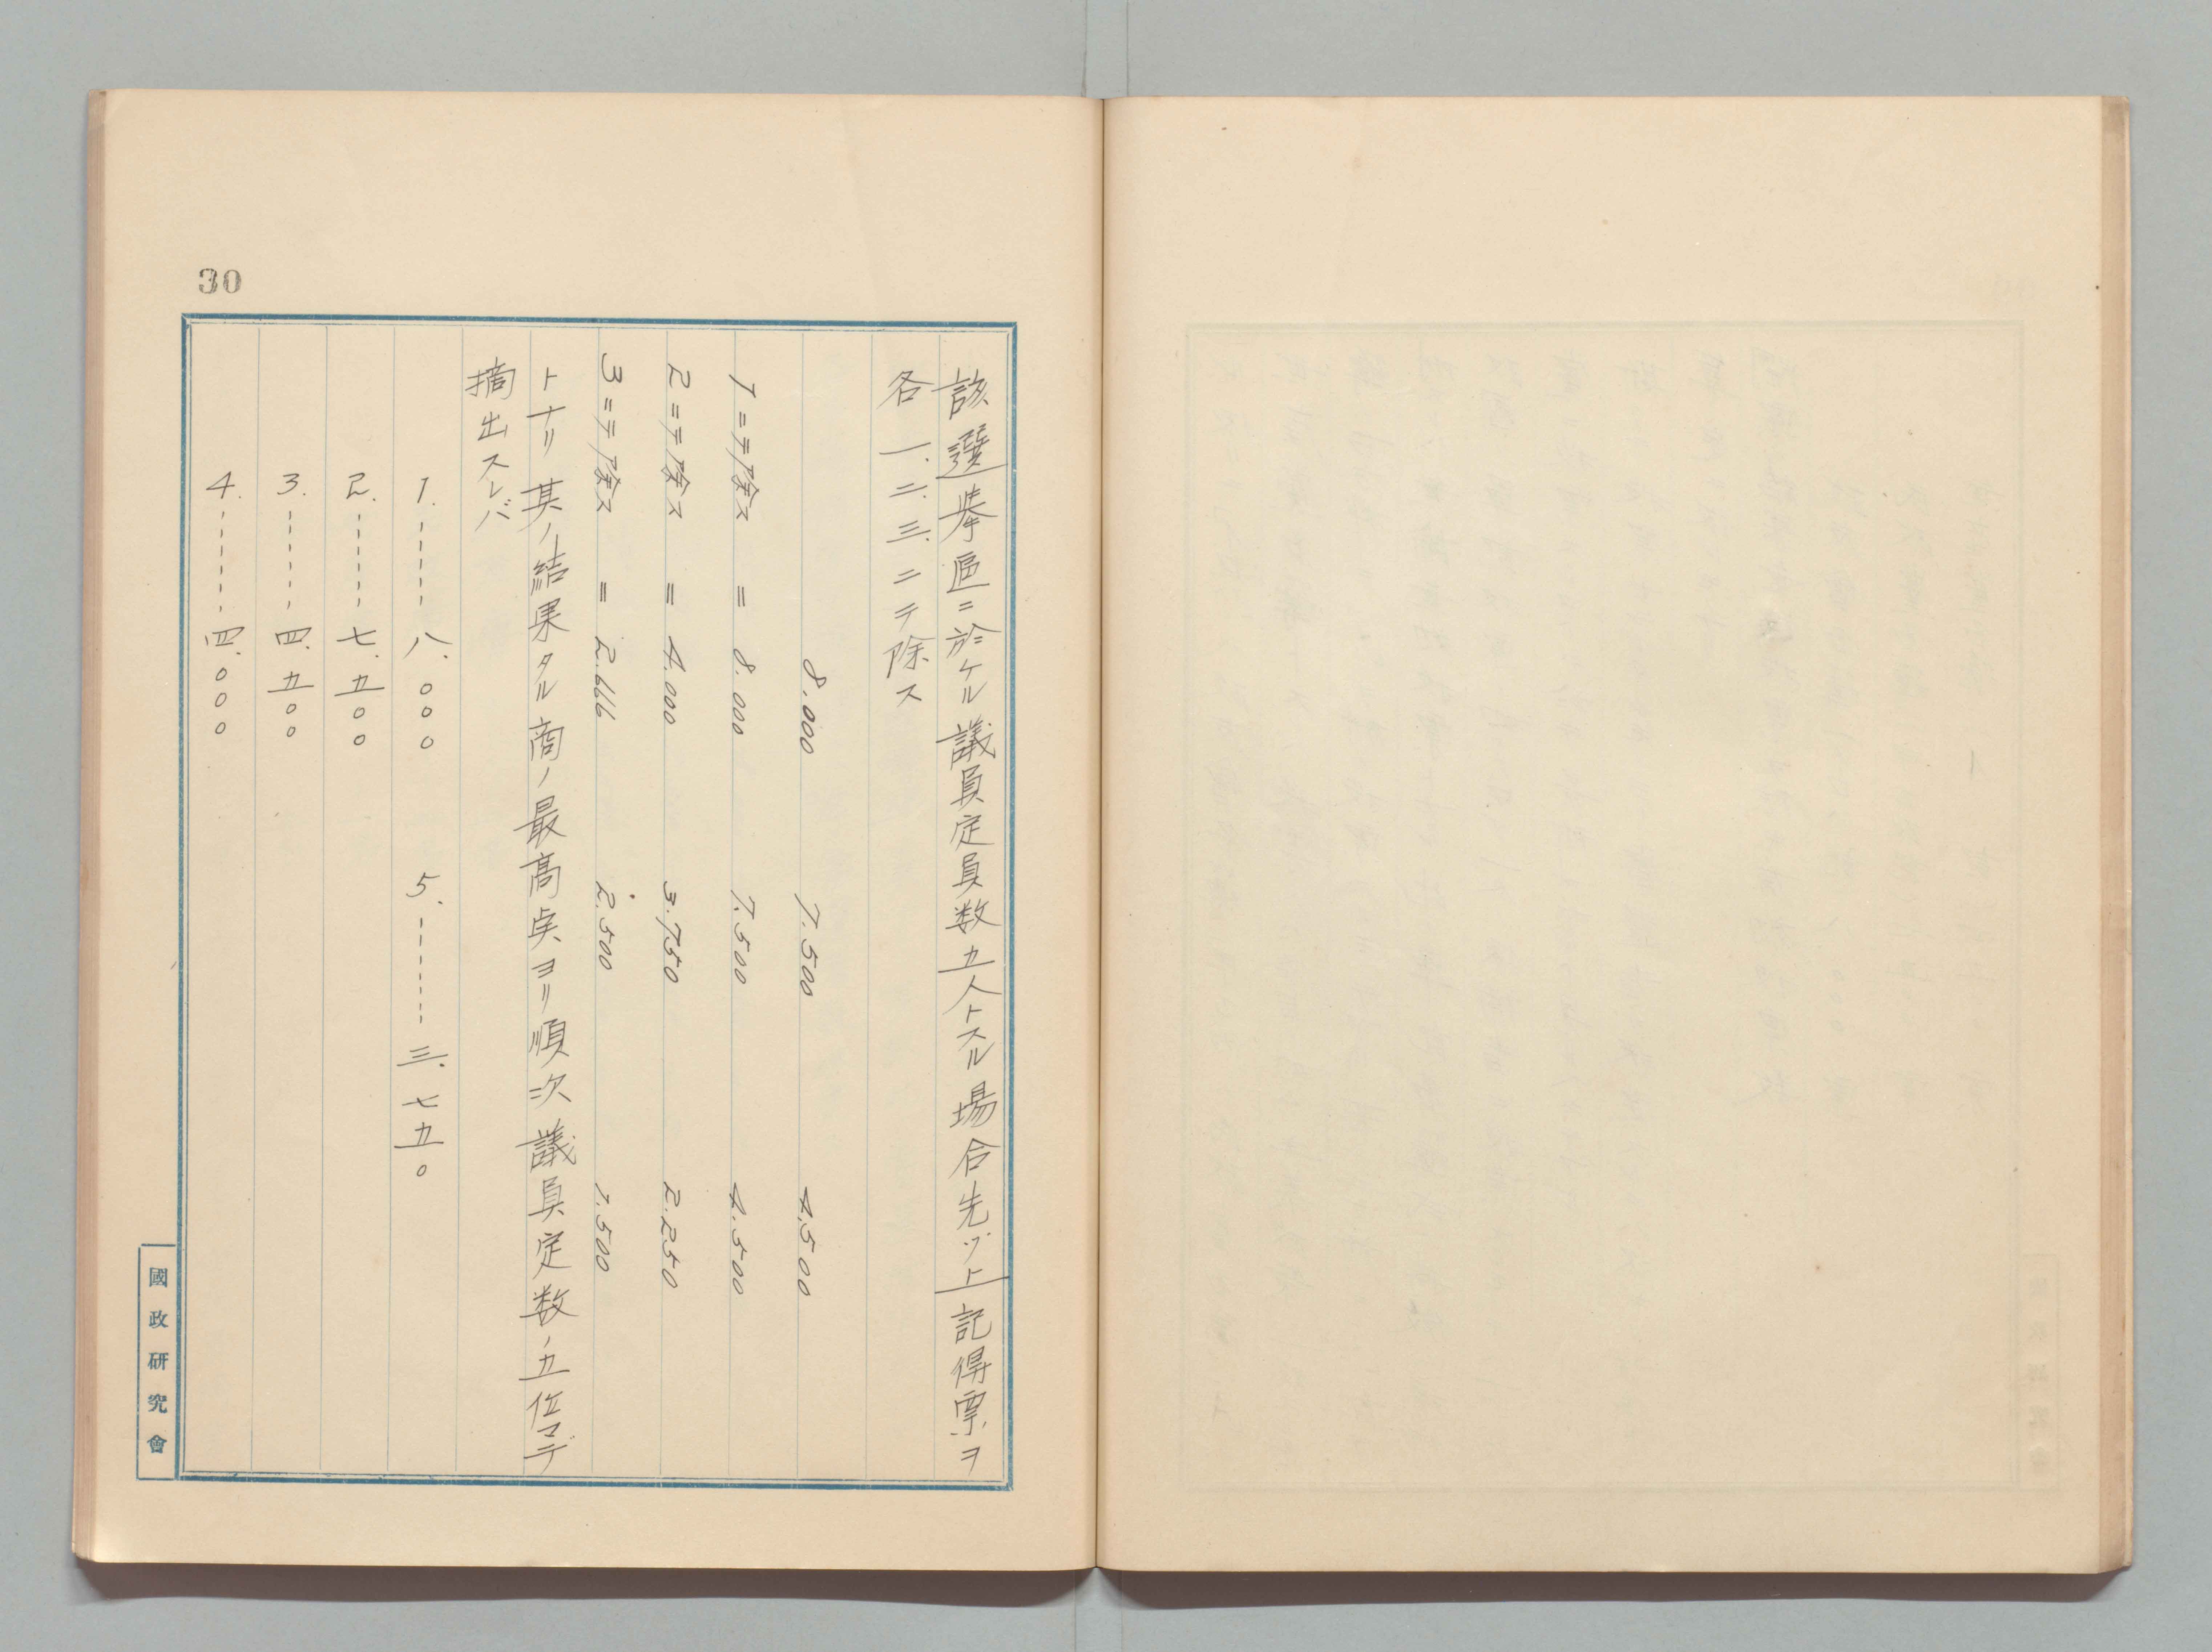 30
該選挙区ニ於ケル議員定員数五人トスル場合先ヅ上記得票ヲ
各一.二.三.ニテ除ス
8.000 7.500 4.500
1ニテ除ス = 8.000 7.500 4.500
2ニテ除ス = 4.000 3.750 2.250
3ニテ除ス = 2.666 2.500 1.500
トナリ其ノ結果タル商ノ最高点ヨリ順次議員定数ノ五位マデ
摘出スレバ
1.------八.〇〇〇 5.------三.七五〇
2.------七.五〇〇
3.------四.五〇〇
4.------四.〇〇〇
國政研究會